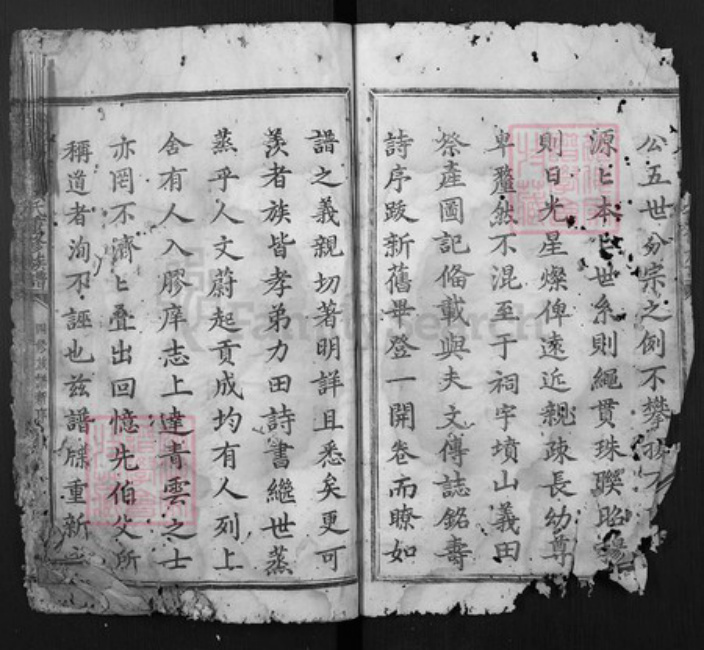 公五世分宗之例不攀
源上本上世系則繩貫珠聯昭
則日光星燦俾遠近親疎長幼尊
卑釐然不混至于祠宇墳山義田
祭產圖記俻載與夫文傳誌銘壽
詩序跋新舊畢登一開卷而瞭如
譜之義親切著明詳且悉矣更可
羡者族皆孝弟力田詩書繼世蒸
蒸乎人文蔚起貢成均有人列上
舍有人入膠庠志上達青雲之士
亦罔不濟上疊出回憶先伯父所
稱道者洵不誣也兹譜牒重新
FamilySearch